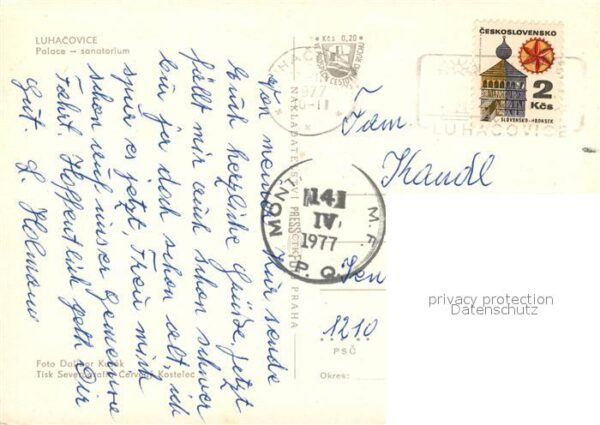 LUHAČOVICE
Palace - sanatorium
Von meiner Kur sende
Euch herzliche Grüße, jetzt
fällt mir auch schon schwer
bin ja doch schon alt, ich
spür es jetzt, Freu mich
schon auf unser gemeinsame
Fahrt. Hoffentlich geht Dir
Gut. L. Holmann
Foto Dalibor Kusák
Tisk Severografia Červený Kostelec
Kčs 0,20
NAKLADATELSTVÍ PRESSFOTO PRAHA
1977
ČESKOSLOVENSKO
2
Kčs
SLOVENSKO - HRONSEK
LUHAČOVICE
Fam.
Kandl
14
IV.
1977
1210
PSČ
Okres:
privacy protection
Datenschutz